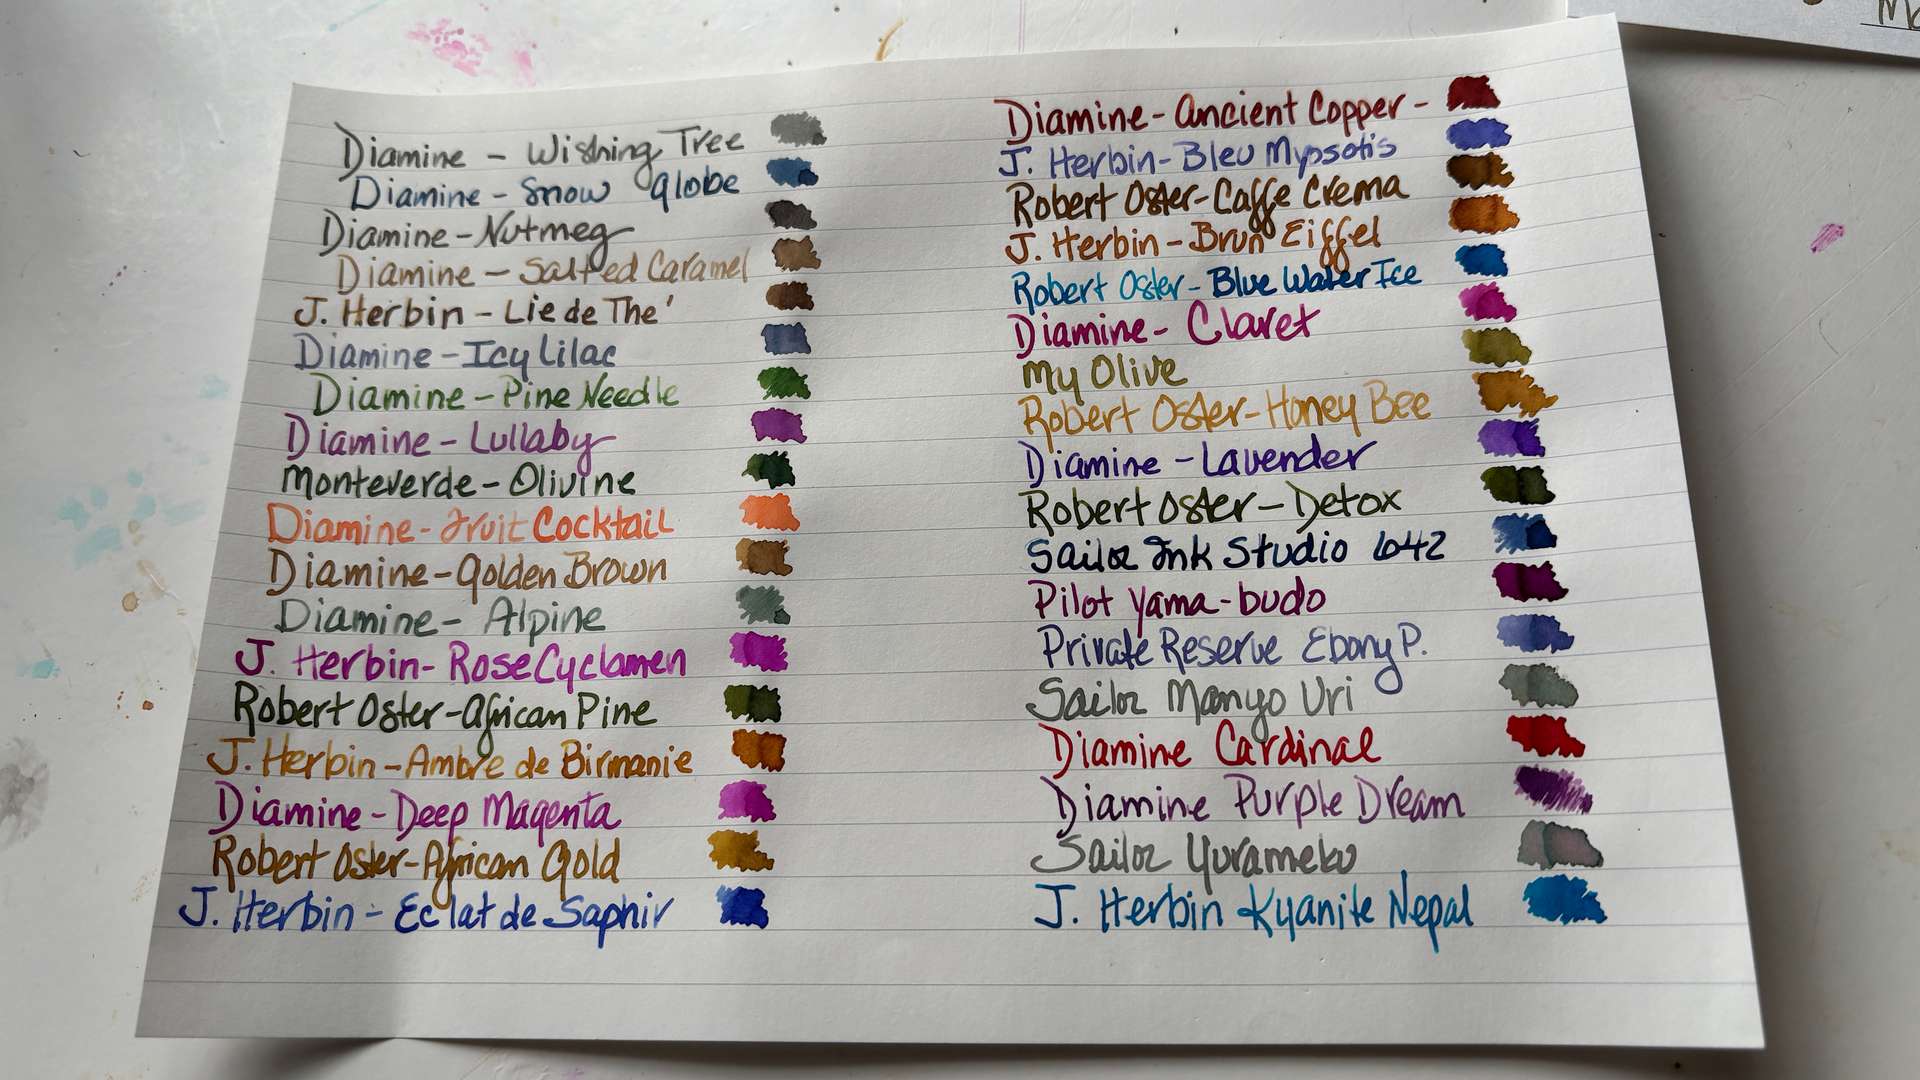 Diamine – Wishing Tree
Diamine – Snow Globe
Diamine – Nutmeg
Diamine – Salted Caramel
J. Herbin – Lie de The'
Diamine – Icy Lilac
Diamine – Pine Needle
Diamine – Lullaby
Monteverde – Olivine
Diamine – Fruit Cocktail
Diamine – Golden Brown
Diamine – Alpine
J. Herbin – Rose Cyclamen
Robert Oster – African Pine
J. Herbin – Ambre de Birmanie
Diamine – Deep Magenta
Robert Oster – African Gold
J. Herbin – Eclat de Saphir
Diamine – Ancient Copper –
J. Herbin – Bleu Myosotis
Robert Oster – Caffe Crema
J. Herbin – Brun Eiffel
Robert Oster – Blue Water Ice
Diamine – Claret
My Olive
Robert Oster – Honey Bee
Diamine – Lavender
Robert Oster – Detox
Sailor Ink Studio 1042
Pilot Yama-budo
Private Reserve Ebony P.
Sailor Manyo Uri
Diamine Cardinal
Diamine Purple Dream
Sailor Yurameku
J. Herbin Kyanite Nepal